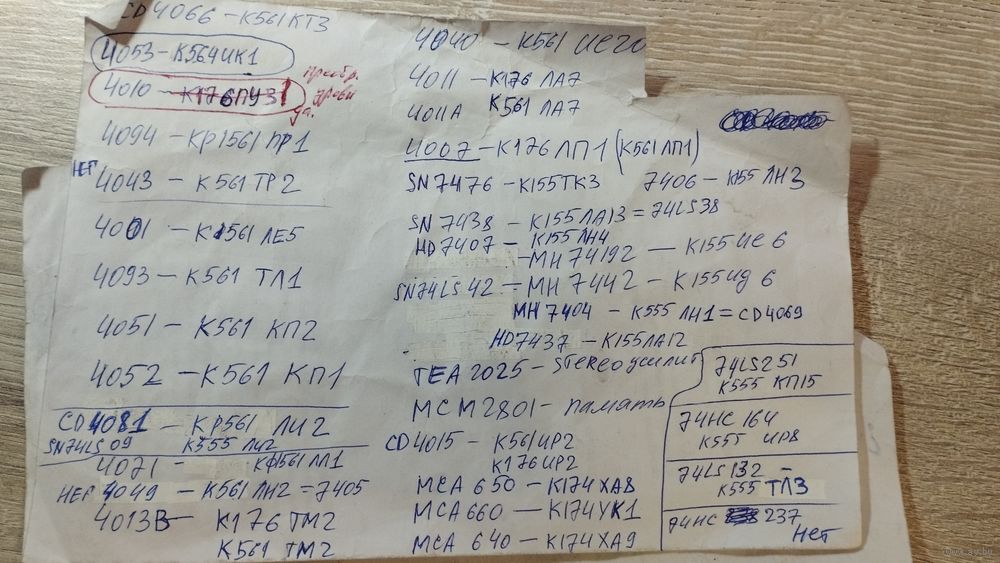 CD4066 - К561КТ3
4053 - К564ИК1
4010 - К176ПУ3
преобр.
уровн
да.
4094 - КР1561ПР1
НЕГ 4043 - К561ТР2
4001 - К1561ЛЕ5
4093 - К561 ТЛ1
4051 - К561 КП2
4052 - К561 КП1
CD4081 - КР561 ЛИ2
SN74LS09 К555 ЛИ2
4071 - КР561ЛЛ1
НЕГ 4049 - К561ЛН2 = 7405
4013B - К176ТМ2
К561 ТМ2
4040 - К561 ИЕ20
4011 - К176 ЛА7
4011А К561 ЛА7
4007 - К176ЛП1 (К561ЛП1)
SN7476 - К155ТК3 7406 - К155 ЛН3
SN 7438 - К155ЛА13 = 74LS38
HD7407 - К155ЛН4
- MH74192 - К155ИЕ6
SN74LS42 - MH7442 - К155ИД6
MH7404 - К555 ЛН1 = CD4069
HD7437 - К155ЛА12
TEA2025 - Stereo усилит
MCM2801 - память
CD4015 - К561ИР2
К176ИР2
MCA 650 - К174ХА8
MCA660 - К174УК1
MCA 640 - К174ХА9
74LS251
К555 КП15
74HC164
К555 ИР8
74LS132 -
К555 ТЛ3
74HC 237
Нет
www.ay.by